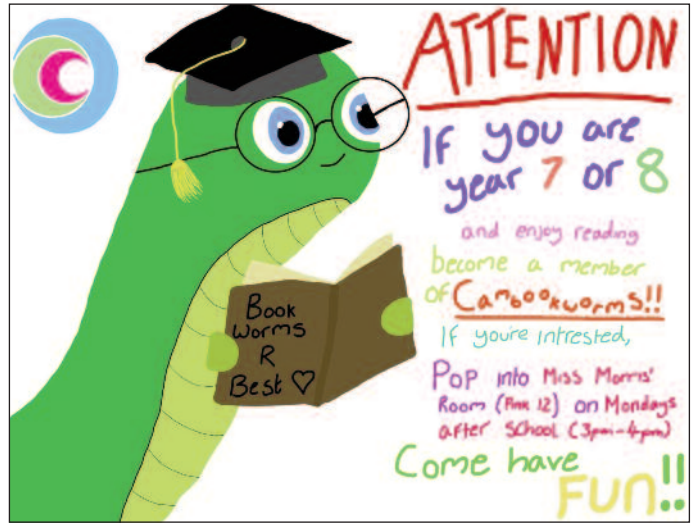 Book
Worms
R
Best ♡
ATTENTION
If you are
year 7 or 8
and enjoy reading
become a member
of Cambookworms!!
If you're intrested,
Pop into Miss Morris'
Room (Pink 12) on Mondays
after School (3pm-4pm)
Come have
FUN!!